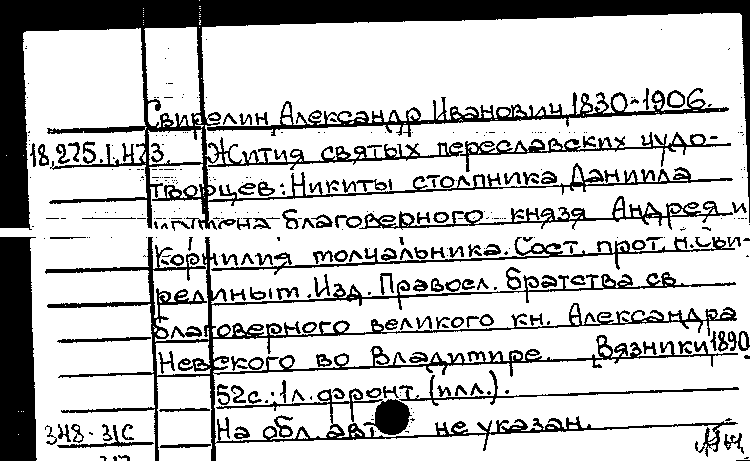 Свирелин, Александр Иванович, 1830-1906.
18.275.1.Н73. Жития святых переславских чудо-
творцев: Никиты столпника, Даниила
игумена благоверного князя Андрея и
Корнилия молчальника. Сост. прот. А. Сви-
релиным. Изд. Правосл. братства св.
благоверного великого кн. Александра
Невского во Владимире. Вязники, 1890
52с.; 1л. фронт. (илл.).
На обл. авт. не указан.
348-31С